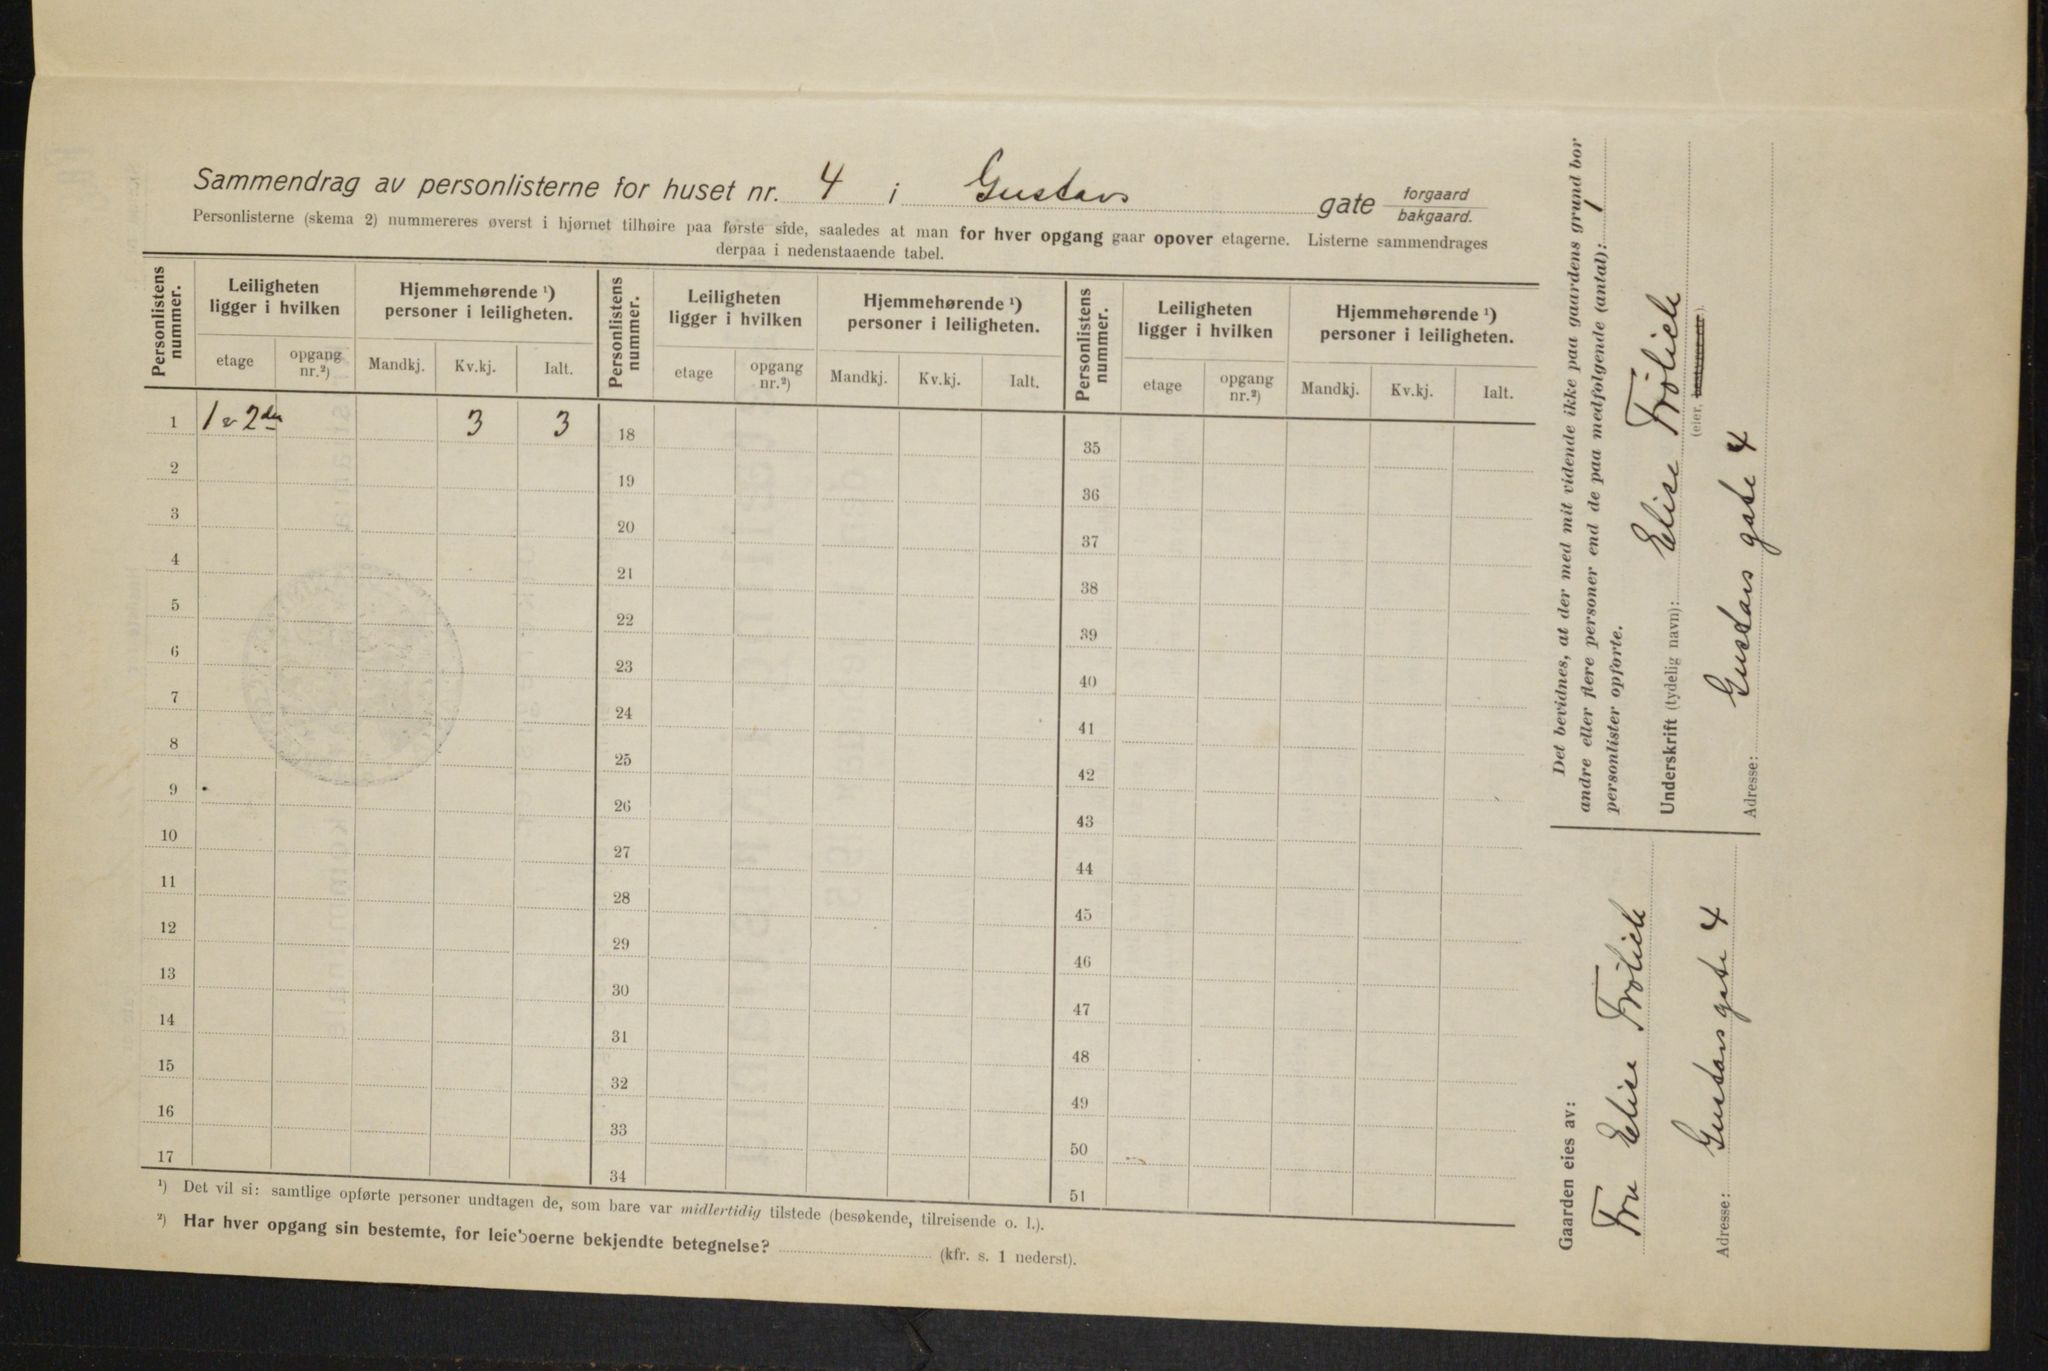 Sammendrag av personlisterne for huset nr. 4 i Gustavs gate forgaard bakgaard.
Personlisterne (skema 2) nummereres øverst i hjørnet tilhøire paa første side, saaledes at man for hver opgang gaar opover etagerne. Listerne sammendrages
derpaa i nedenstaaende tabel.
Personlistens nummer. Leiligheten ligger i hvilken Hjemmehørende ¹) personer i leiligheten. Personlistens nummer. Leiligheten ligger i hvilken Hjemmehørende ¹) personer i leiligheten. Personlistens nummer. Leiligheten ligger i hvilken Hjemmehørende ¹) personer i leiligheten.
etage opgang nr.²) Mandkj. Kv.kj. Ialt. etage opgang nr.²) Mandkj. Kv.kj. Ialt. etage opgang nr.²) Mandkj. Kv.kj. Ialt.
1 1 & 2den 3 3 18 35
2 19 36
3 20 37
4 21 38
5 22 39
6 23 40
7 24 41
8 25 42
9 26 43
10 27 44
11 28 45
12 29 46
13 30 47
14 31 48
15 32 49
16 33 50
17 34 51
¹) Det vil si: samtlige opførte personer undtagen de, som bare var midlertidig tilstede (besøkende, tilreisende o. l.).
²) Har hver opgang sin bestemte, for leieboerne bekjendte betegnelse? (kfr. s. 1 nederst).
Det bevidnes, at der med mit vidende ikke paa gaardens grund bor
andre eller flere personer end de paa medfolgende (antal): 1
personlister opforte.
Underskrift (tydelig navn): Elise Frølich
(eier, ).
Adresse: Gustavs gate 4
Gaarden eies av:
Fru Elise Frølich
Adresse: Gustavs gate 4